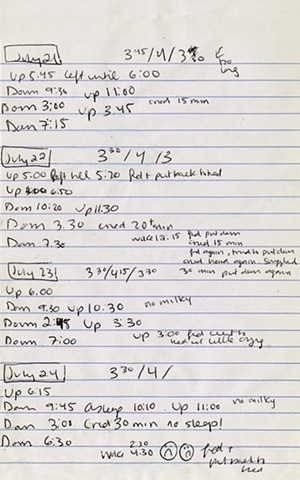 July 21 3 45/4/3 30 too long
Up 5:45 left until 6:00
Down 9:30 up 11:00
Down 3:00 up 3:45 cried 15 min
Down 7:15
July 22 3 30/4/3
Up 5:00 left till 5:20 Fed + put back to bed
Up 6:50
Down 10:20 up 11:30
Down 3.30 cried 20+ min
Down 7.30 woke 12:15 fed put down
cried 15 min
fed again, tried to put down
cried hard again. Snuggled
30 min put down again
July 23 3 30/4 15/3 30
Up 6.00
Down 9.30 up 10.30 no milky
Down 2:45 up 3:30
Down 7:00 up 3:00 fed went to
bed little
July 24 3 30/4/
Up 6:15
Down 9:45 asleep 10:10 up 11:00 no milky
Down 3:00 Cried 30 min no sleep!
Down 6:30 woke 2:30 4:30 fed +
put back to
bed